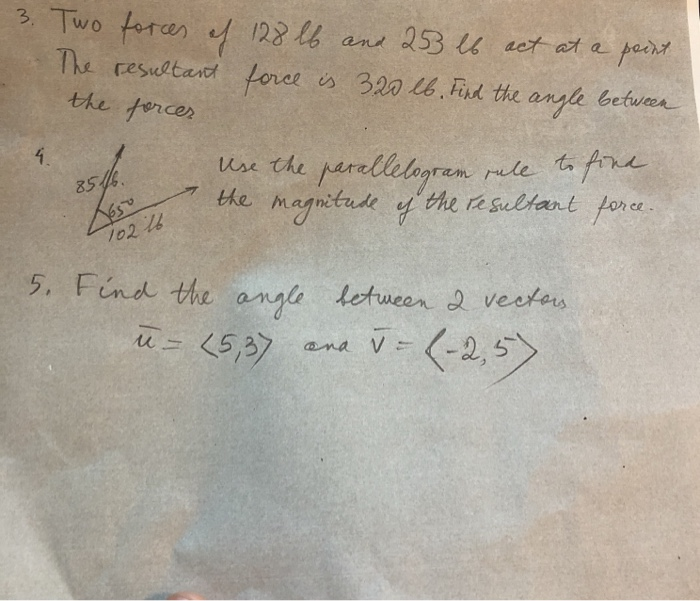 3. Two forces of 128 lb and 253 lb act at a point
The resultant force is 320 lb. Find the angle between
the forces
4. Use the parallelogram rule to find
85 lb.
the magnitude of the resultant force.
65°
102 lb
5. Find the angle between 2 vectors
u̅ = ⟨5,3⟩ and v̅ = ⟨-2,5⟩